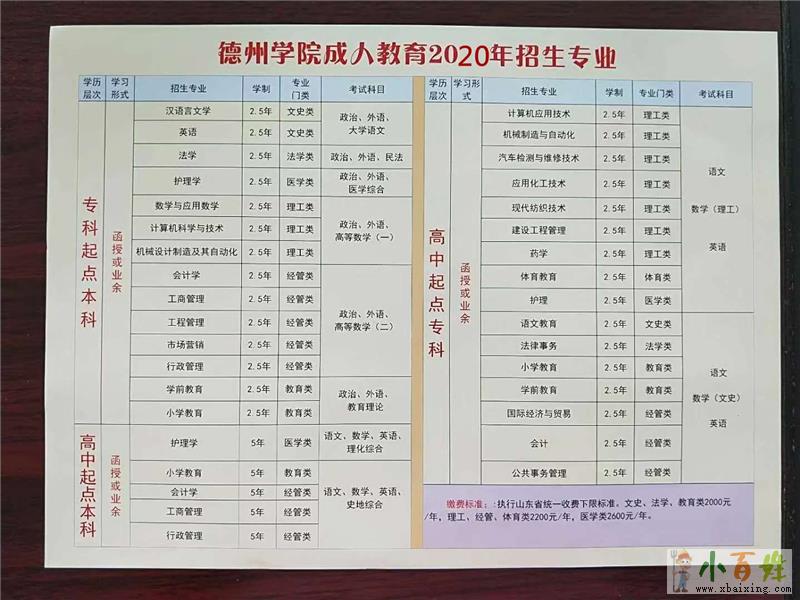 德州学院成人教育2020年招生专业
学历层次 学习形式 招生专业 学制 专业门类 考试科目
专科起点本科 函授或业余
汉语言文学 2.5年 文史类 政治、外语、大学语文
英语 2.5年 文史类
法学 2.5年 法学类 政治、外语、民法
护理学 2.5年 医学类 政治、外语、医学综合
数学与应用数学 2.5年 理工类 政治、外语、高等数学（一）
计算机科学与技术 2.5年 理工类
机械设计制造及其自动化 2.5年 理工类
会计学 2.5年 经管类 政治、外语、高等数学（二）
工商管理 2.5年 经管类
工程管理 2.5年 经管类
市场营销 2.5年 经管类
行政管理 2.5年 经管类
学前教育 2.5年 教育类 政治、外语、教育理论
小学教育 2.5年 教育类
高中起点本科 函授或业余
护理学 5年 医学类 语文、数学、英语、理化综合
小学教育 5年 教育类 语文、数学、英语、史地综合
会计学 5年 经管类
工商管理 5年 经管类
行政管理 5年 经管类
学历层次 学习形式 招生专业 学制 专业门类 考试科目
高中起点专科 函授或业余
计算机应用技术 2.5年 理工类 语文 数学（理工） 英语
机械制造与自动化 2.5年 理工类
汽车检测与维修技术 2.5年 理工类
应用化工技术 2.5年 理工类
现代纺织技术 2.5年 理工类
建设工程管理 2.5年 理工类
药学 2.5年 理工类
体育教育 2.5年 体育类
护理 2.5年 医学类
语文教育 2.5年 文史类 语文 数学（文史） 英语
法律事务 2.5年 法学类
小学教育 2.5年 教育类
学前教育 2.5年 教育类
国际经济与贸易 2.5年 经管类
会计 2.5年 经管类
公共事务管理 2.5年 经管类
缴费标准：:执行山东省统一收费下限标准。文史、法学、教育类2000元
/年，理工、经管、体育类2200元/年，医学类2600元/年。
小百姓
www.xbaixing.com